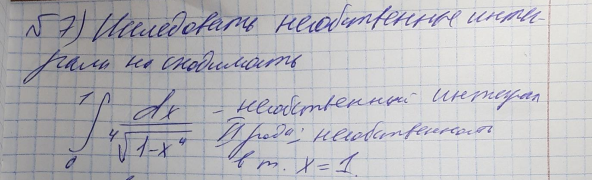 № 7) Исследовать несобственные инте-
гралы на сходимость
∫₀¹ dx / ⁴√(1-x⁴) - несобственный интеграл
II рода: несобственность
в т. x = 1.